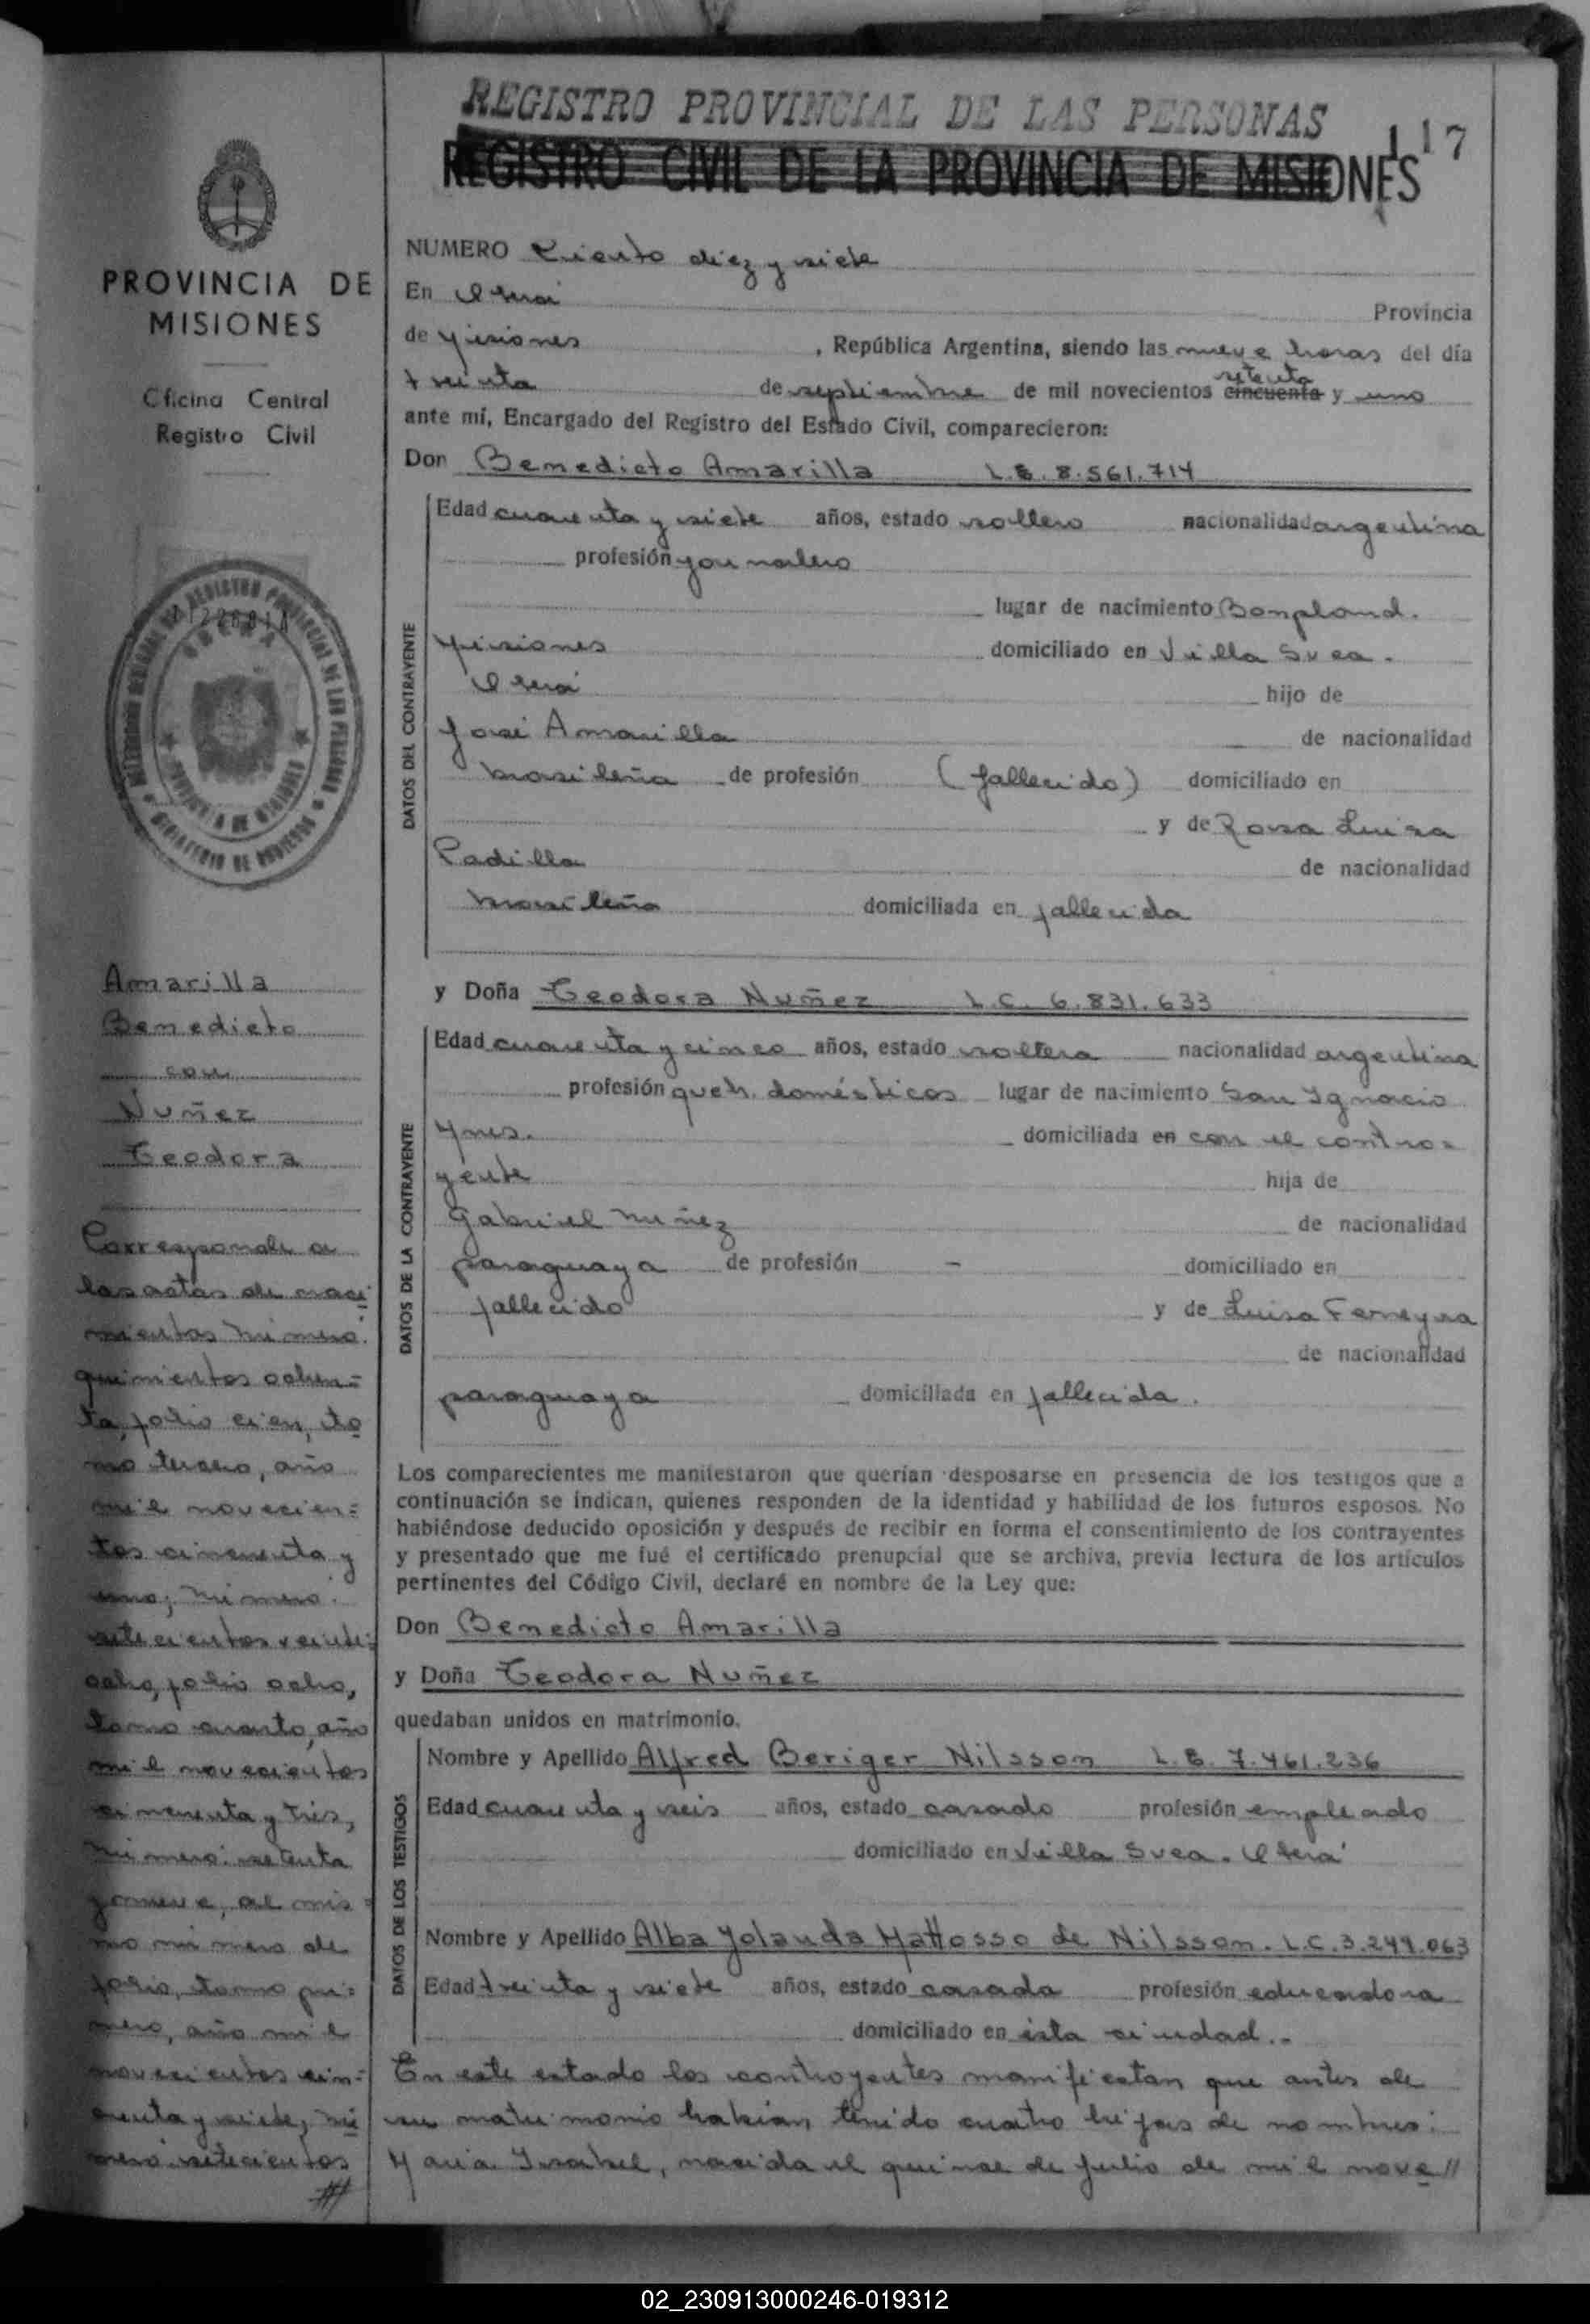 REGISTRO PROVINCIAL DE LAS PERSONAS
117
REGISTRO CIVIL DE LA PROVINCIA DE MISIONES
PROVINCIA DE
MISIONES
Oficina Central
Registro Civil
Amarilla
Benedicto
con
Nuñez
Teodora
Corresponde a
las actas de naci
mientos número:
quinientos ochen=
ta, folio cien, to
mo tercero, año
mil novecien=
tos cincuenta y
uno; número:
setecientos veinti=
ocho, folio ocho,
tomo cuarto, año
mil novecientos
cincuenta y tres,
número: setenta
y nueve, al mis=
mo número de
folio, tomo pri=
mero, año mil
novecientos cin=
cuenta y siete, nú
mero: setecientos
//
NUMERO Ciento diez y siete
En Oberá Provincia
de Misiones , República Argentina, siendo las nueve horas del día
treinta de septiembre de mil novecientos cincuenta setenta y uno
ante mí, Encargado del Registro del Estado Civil, comparecieron:
Don Benedicto Amarilla L.E. 8.561.714
DATOS DEL CONTRAYENTE
Edad cuarenta y siete años, estado soltero nacionalidad argentina
profesión jornalero
lugar de nacimiento Bonpland.
Misiones domiciliado en Villa Svea.
Oberá hijo de
José Amarilla de nacionalidad
brasileña de profesión (fallecido) domiciliado en
y de Rosa Luisa
Padilla de nacionalidad
brasileña domiciliada en fallecida
y Doña Teodora Nuñez L.C. 6.831.633
DATOS DE LA CONTRAYENTE
Edad cuarenta y cinco años, estado soltera nacionalidad argentina
profesión queh. domésticos lugar de nacimiento San Ignacio
Mnes. domiciliada en con el contra=
yente hija de
Gabriel Nuñez de nacionalidad
paraguaya de profesión - domiciliado en
fallecido y de Luisa Ferreyra
de nacionalidad
paraguaya domiciliada en fallecida.
Los comparecientes me manifestaron que querían desposarse en presencia de los testigos que a
continuación se indican, quienes responden de la identidad y habilidad de los futuros esposos. No
habiéndose deducido oposición y después de recibir en forma el consentimiento de los contrayentes
y presentado que me fué el certificado prenupcial que se archiva, previa lectura de los artículos
pertinentes del Código Civil, declaré en nombre de la Ley que:
Don Benedicto Amarilla
y Doña Teodora Nuñez
quedaban unidos en matrimonio.
DATOS DE LOS TESTIGOS
Nombre y Apellido Alfred Beriger Nilsson L.E. 7.461.236
Edad cuarenta y seis años, estado casado profesión empleado
domiciliado en Villa Svea. Oberá
Nombre y Apellido Alba Yolanda Mattosso de Nilsson. L.C. 3.249.063
Edad treinta y siete años, estado casada profesión educadora
domiciliado en ésta ciudad.-
En este estado los contrayentes manifiestan que antes de
su matrimonio habían tenido cuatro hijas de nombres:
María Isabel, nacida el quince de julio de mil nove//
02_230913000246-019312